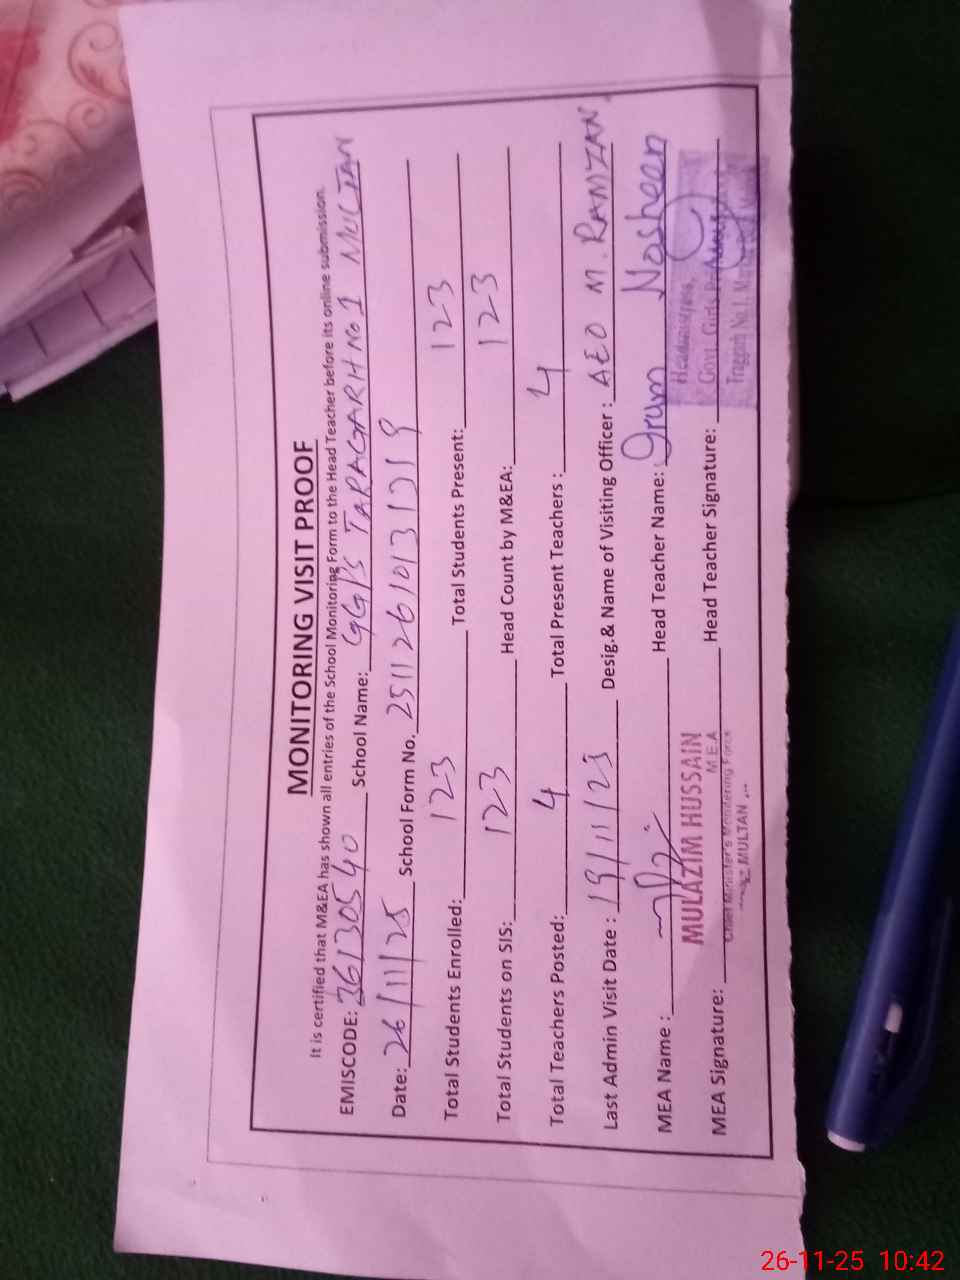 MONITORING VISIT PROOF
It is certified that M&EA has shown all entries of the School Monitoring Form to the Head Teacher before its online submission.
EMISCODE: 36130540 School Name: GGPS TARAGARH No 1 MULTAN
Date: 26/11/25 School Form No. 2511261013131 9
Total Students Enrolled: 123 Total Students Present: 123
Total Students on SIS: 123 Head Count by M&EA: 123
Total Teachers Posted: 4 Total Present Teachers : 4
Last Admin Visit Date : 19/11/25 Desig.& Name of Visiting Officer : AEO M. RAMZAN
MEA Name : Head Teacher Name: Irum Nosheen
MULAZIM HUSSAIN
M.E.A
Chief Minister's Monitoring Force
MULTAN
Headmistress,
Govt. Girls
No.1,
MEA Signature: Head Teacher Signature:
26-11-25 10:42